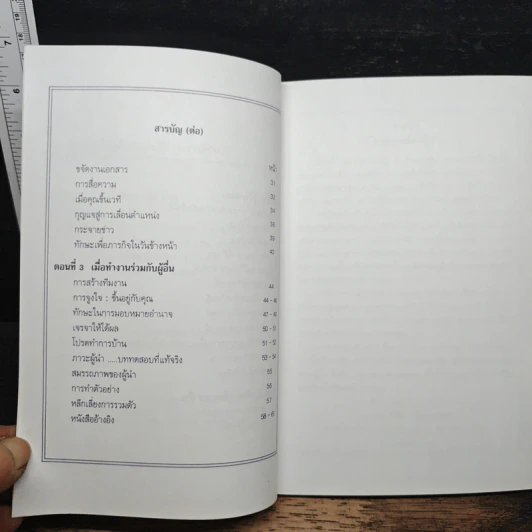 สารบัญ (ต่อ)
หน้า
ขจัดงานเอกสาร
การสื่อความ 31
เมื่อคุณขึ้นเวที
กุญแจสู่การเลื่อนตำแหน่ง 34
กระจายข่าว
ทักษะเพื่อภารกิจในวันข้างหน้า 40
ตอนที่ 3 เมื่อทำงานร่วมกับผู้อื่น
การสร้างทีมงาน 44
การจูงใจ : ขึ้นอยู่กับคุณ
ทักษะในการมอบหมายอำนาจ
เจรจาให้ได้ผล
โปรดทำการบ้าน 51 - 52
ภาวะผู้นำ ....บททดสอบที่แท้จริง 53 - 54
สมรรถภาพของผู้นำ 55
การทำตัวอย่าง 56
หลีกเลี่ยงการรวมตัว 57
หนังสืออ้างอิง